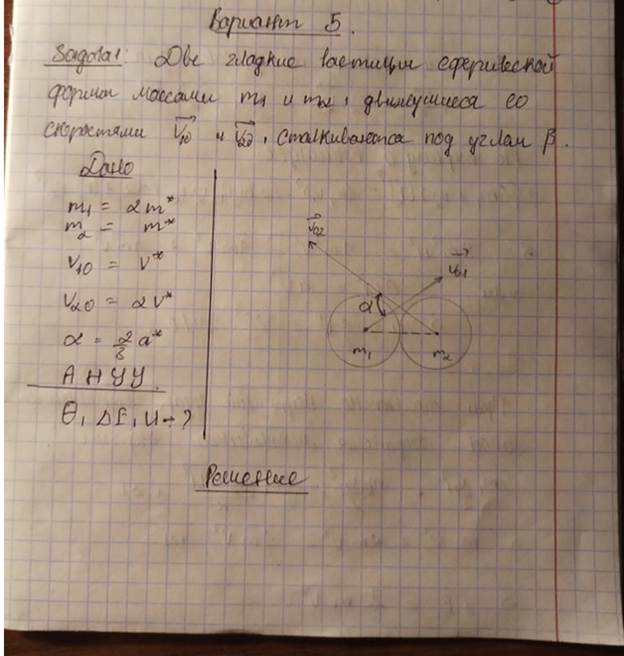 Вариант 5.
Задача1: Две гладкие частицы сферической
формы массами m1 и m2, движущиеся со
скоростями V10 и V20, сталкиваются под углом β.
Дано
m1 = 2m*
m2 = m*
V10 = V*
V20 = 2V*
α = 2/3 a*
А Н У У.
θ, ΔE, U - ?
V02
V01
α
m1
m2
Решение